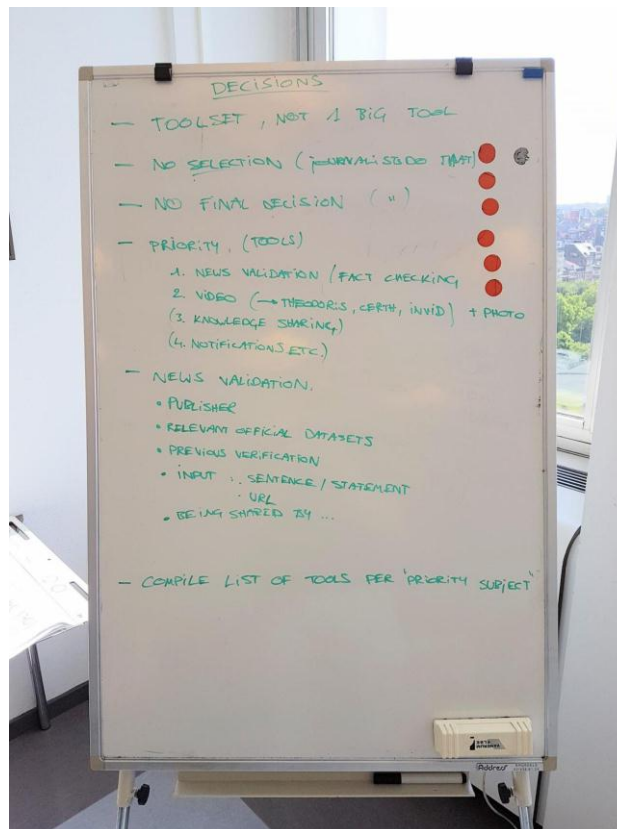 DECISIONS
— TOOLSET, NOT 1 BIG TOOL
— NO SELECTION (JOURNALISTS DO THAT)
— NO FINAL DECISION (")
— PRIORITY, (TOOLS)
1. NEWS VALIDATION / FACT CHECKING
2. VIDEO (→ THEODORIS, CERTH, INVID) + PHOTO
(3. KNOWLEDGE SHARING)
(4. NOTIFICATIONS ETC.)
— NEWS VALIDATION.
• PUBLISHER
• RELEVANT OFFICIAL DATASETS
• PREVIOUS VERIFICATION
• INPUT : . SENTENCE / STATEMENT
· URL
• BEING SHARED BY ...
— COMPILE LIST OF TOOLS PER "PRIORITY SUBJECT"
Address